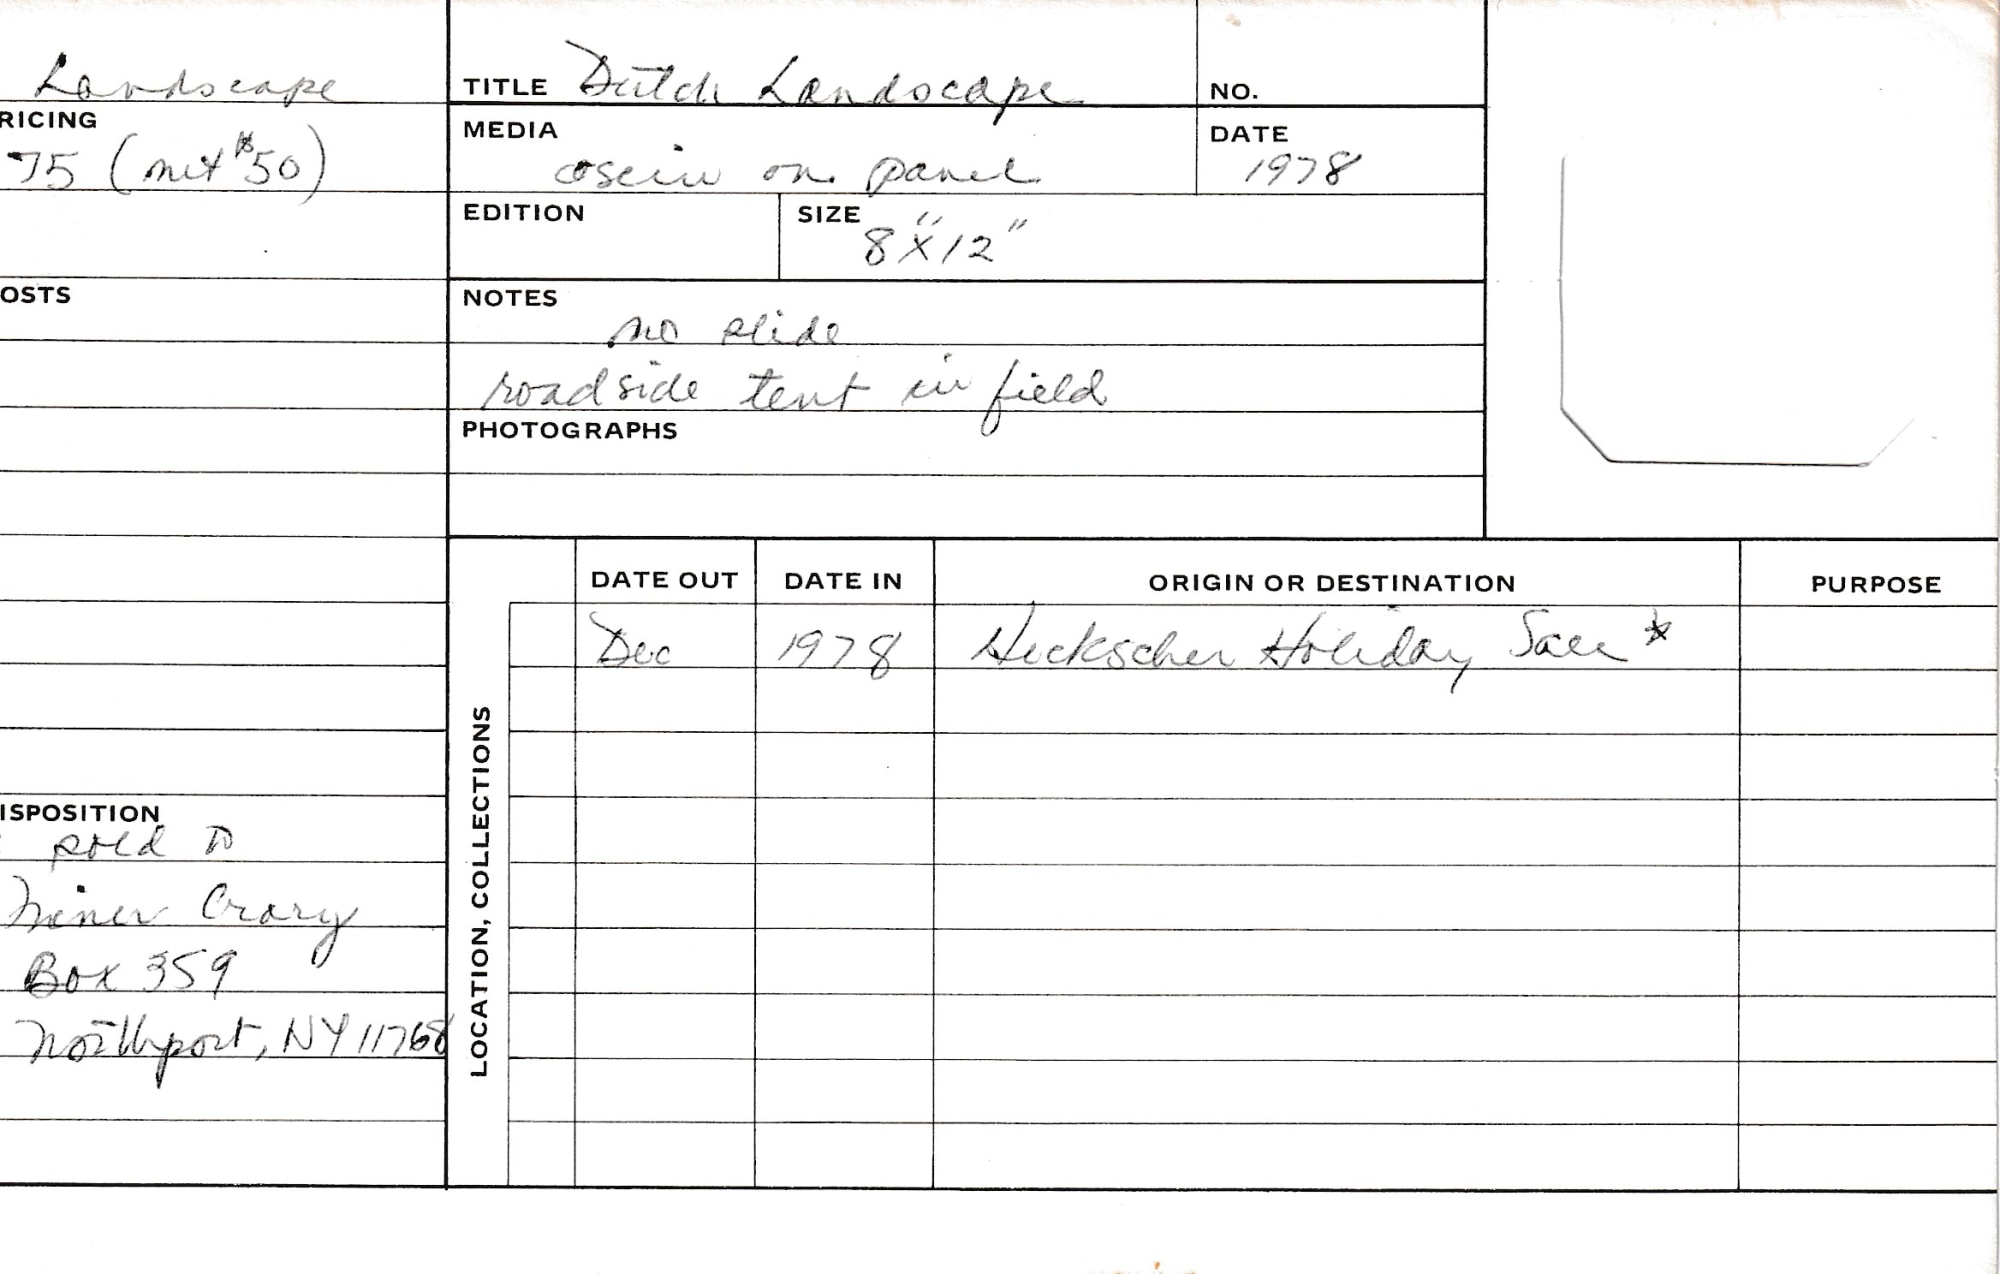 Landscape
RICING
75 (net $50)
OSTS
ISPOSITION
sold to
Miner Crary
Box 359
Northport, NY 11768
TITLE Dutch Landscape
NO.
MEDIA
casein on panel
DATE
1978
EDITION
SIZE
8"X12"
NOTES
no slide
roadside tent in field
PHOTOGRAPHS
LOCATION, COLLECTIONS
DATE OUT DATE IN ORIGIN OR DESTINATION PURPOSE
Dec 1978 Heckscher Holiday Sale *